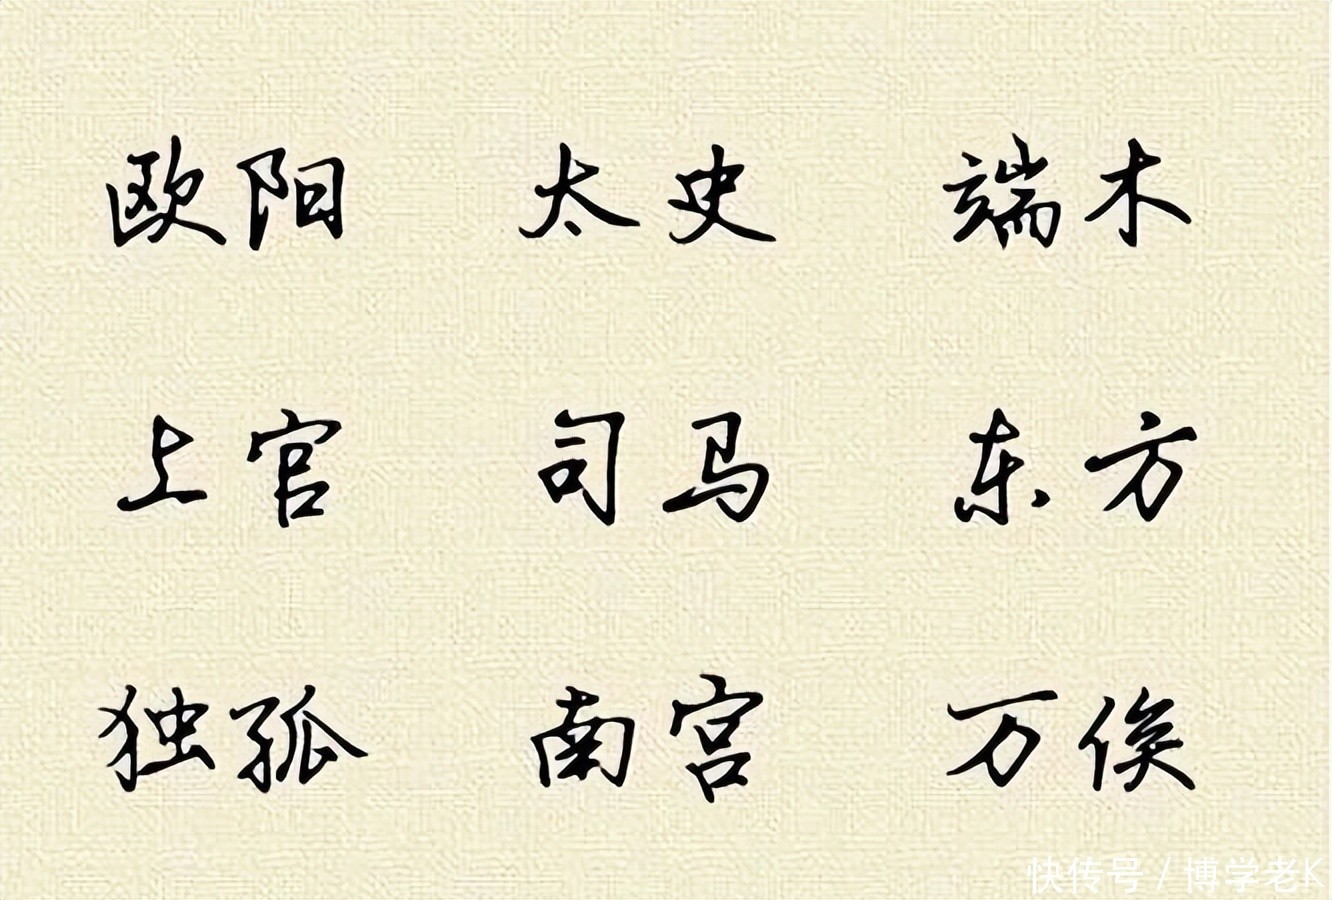 欧阳 太史 端木
上官 司马 东方
独孤 南宫 万俟
快传号 / 博学老K